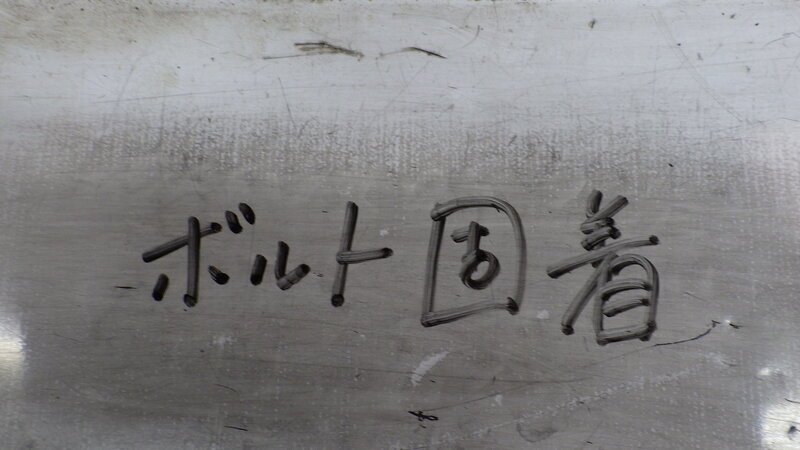 ボルト固着